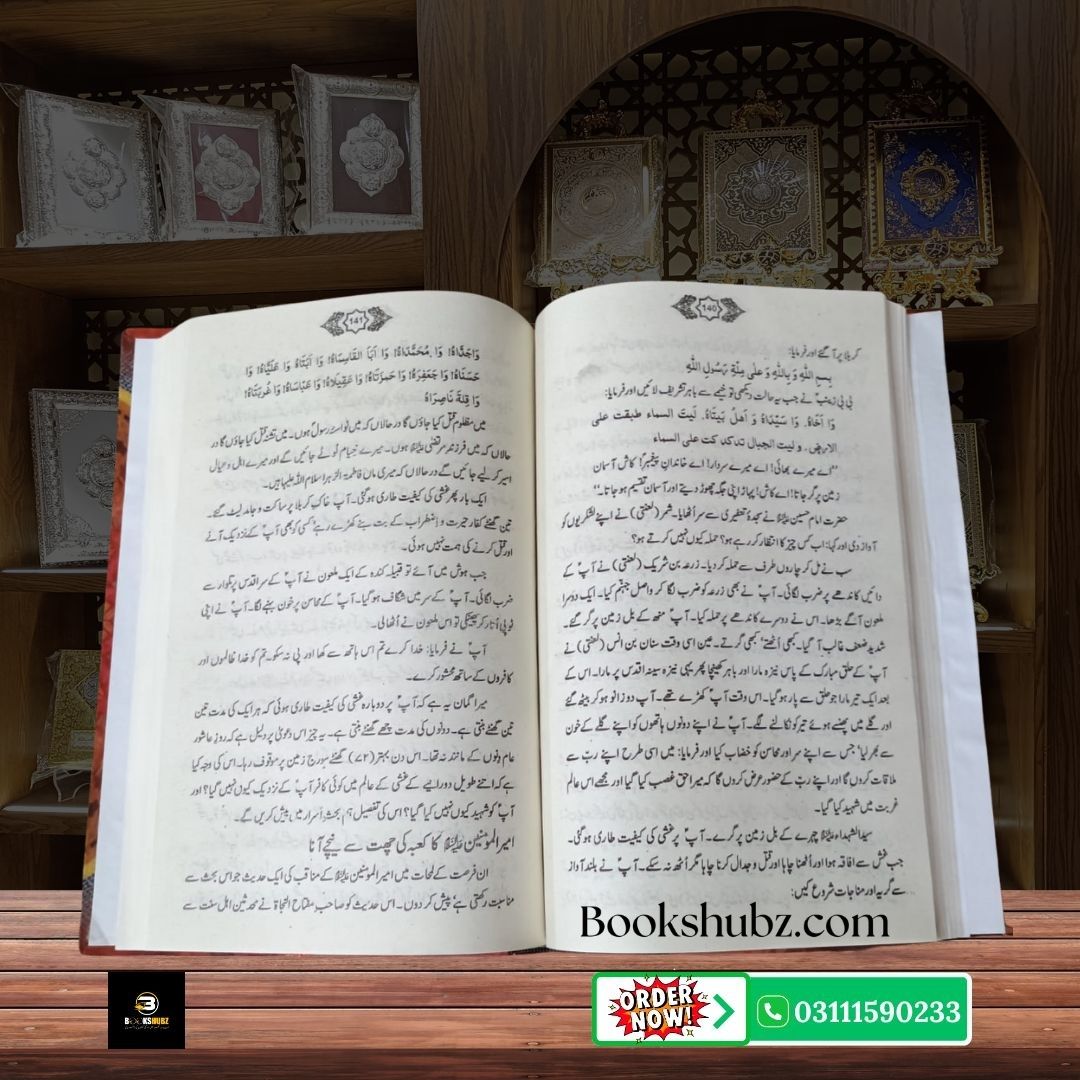 140
کربلا پر آ گئے اور فرمایا:
بِسمِ اللّٰهِ وَ بِاللّٰهِ وَ عَلٰی مِلَّةِ رَسُولِ اللّٰهِ
بی بی زینبؑ نے جب یہ حالت دیکھی تو خیمے سے باہر تشریف لائیں اور فرمایا:
وَا اَخَاهُ. وَا سَيِّدَاهُ وَ اَهلُ بَيتَاهُ. لَيتَ السماء طبقت علی
الارض. و ليت الجبال تدكدكت علی السماء
''اے میرے بھائی! اے میرے سردار! اے خاندانِ پیغمبرؐ! کاش آسمان
زمین پر گر جاتا! اے کاش! پہاڑ اپنی جگہ چھوڑ دیتے اور آسمان تقسیم ہو جاتا۔''
حضرت امام حسین علیہ السلام نے سجدۂ تطہیری سے سر اُٹھایا۔ شمر (لعنتی) نے اپنے لشکریوں کو
آواز دی اور کہا: اب کس چیز کا انتظار کر رہے ہو؟ حملہ کیوں نہیں کرتے ہو؟
سب نے مل کر چاروں طرف سے حملہ کر دیا۔ زرعہ بن شریک (لعنتی) نے آپؑ کے
دائیں کاندھے پر ضرب لگائی۔ آپؑ نے بھی زرعہ کو ضرب لگا کر واصلِ جہنم کیا۔ ایک دوسرا
ملعون آگے بڑھا۔ اس نے دوسرے کاندھے پر حملہ کیا۔ آپؑ منھ کے بل زمین پر گر گئے۔
شدید ضعف غالب آ گیا۔ کبھی اُٹھتے، کبھی گرتے۔ عین اسی وقت سنان بن انس (لعنتی) نے
آپؑ کے حلق مبارک کے پاس نیزہ مارا اور باہر کھینچا پھر یہی نیزہ سینۂ اقدس پر مارا۔ اس کے
بعد ایک تیر مارا جو حلق سے پار ہو گیا۔ اس وقت آپؑ کھڑے تھے۔ آپؑ دو زانو ہو کر بیٹھ گئے
اور گلے میں پھنسے ہوئے تیر کو نکالنے لگے۔ آپؑ نے اپنے دونوں ہاتھوں کو اپنے گلے کے خون
سے بھر لیا، جس سے اپنے سر اور محاسن کو خضاب کیا اور فرمایا: میں اسی طرح اپنے ربّ سے
ملاقات کروں گا اور اپنے ربّ کے حضور عرض کروں گا کہ میرا حق غصب کیا گیا اور مجھے اس عالم
غربت میں شہید کیا گیا۔
سیدالشہداء علیہ السلام چہرے کے بل زمین پر گرے۔ آپؑ پر غشی کی کیفیت طاری ہو گئی۔
جب غش سے افاقہ ہوا اور اُٹھنا چاہا اور قتل و جدال کرنا چاہا مگر اُٹھ نہ سکے۔ آپؑ نے بلند آواز
سے گریہ اور مناجات شروع کیں:
141
وَاجَدَّاهُ! وَا مُحَمَّدَاهُ! وَا اَبَا القَاسِمَاهُ! وَا اَبَتَاهُ وَا عَلِيَّاهُ! وَا
حَسَنَاهُ! وَا جَعفَرَاهُ! وَا حَمزَتَاهُ! وَا عَقِيلَاهُ! وَا عَبَّاسَاهُ! وَا غُربَتَاهُ!
وَا قِلَّةَ نَاصِرَاهُ
میں مظلوم قتل کیا جاؤں گا در حالاں کہ میں نواسۂ رسولؐ ہوں۔ میں تشنہ قتل کیا جاؤں گا در
حالاں کہ میں فرزندِ مرتضیٰ علیہ السلام ہوں۔ میرے خیام لُوٹے جائیں گے اور میرے اہل و عیال
اسیر کر لیے جائیں گے در حالاں کہ میری ماں فاطمۃ الزہرا سلام اللہ علیہا ہیں۔
ایک بار پھر غشی کی کیفیت طاری ہو گئی۔ آپؑ خاکِ کربلا پر ساکت و جامد لیٹ گئے۔
تین گھنٹے کفار حیرت و اضطراب کے بت بنے کھڑے رہے، کسی کو بھی آپؑ کے نزدیک آنے
اور قتل کرنے کی ہمت نہیں ہوئی۔
جب ہوش میں آئے تو قبیلہ کندہ کے ایک ملعون نے آپؑ کے سر اقدس پر تلوار سے
ضرب لگائی۔ آپؑ کے سر میں شگاف ہو گیا۔ آپؑ کے محاسن پر خون بہنے لگا۔ آپؑ نے اپنی
ٹوپی اُتار کر پھینکی تو اس ملعون نے اُٹھا لی۔
آپؑ نے فرمایا: خدا کرے تم اس ہاتھ سے کھا اور پی نہ سکو۔ تم کو خدا ظالموں اور
کافروں کے ساتھ محشور کرے۔
میرا گمان یہ ہے کہ آپؑ پر دوبارہ غشی کی کیفیت طاری ہوئی کہ ہر ایک کی مدت تین
تین گھنٹے بنتی ہے۔ دونوں کی مدت چھے گھنٹے بنتی ہے۔ یہ چیز اس دعویٰ پر دلیل ہے کہ روزِ عاشور
عام دنوں کے مانند نہ تھا۔ اس دن بہتر (۷۲) گھنٹے سورج زمین پر موقوف رہا۔ اس کی وجہ کیا
ہے کہ اتنے طویل دورانیے کے غشی کے عالم میں کوئی کافر آپؑ کے نزدیک کیوں نہیں گیا؟ اور
آپؑ کو شہید کیوں نہیں کیا گیا؟ اس کی تفصیل ہم بحثِ اسرار میں پیش کریں گے۔
امیر المومنین علیہ السلام کا کعبہ کی چھت سے نیچے آنا
ان فرصت کے لمحات میں امیر المومنین علیہ السلام کے مناقب کی ایک حدیث جو اس بحث سے
مناسبت رکھتی ہے پیش کر دوں۔ اس حدیث کو صاحبِ مفتاح النجاۃ نے محدثین اہل سنت سے
Bookshubz.com
BOOKSHUBZ
ORDER NOW!
03111590233